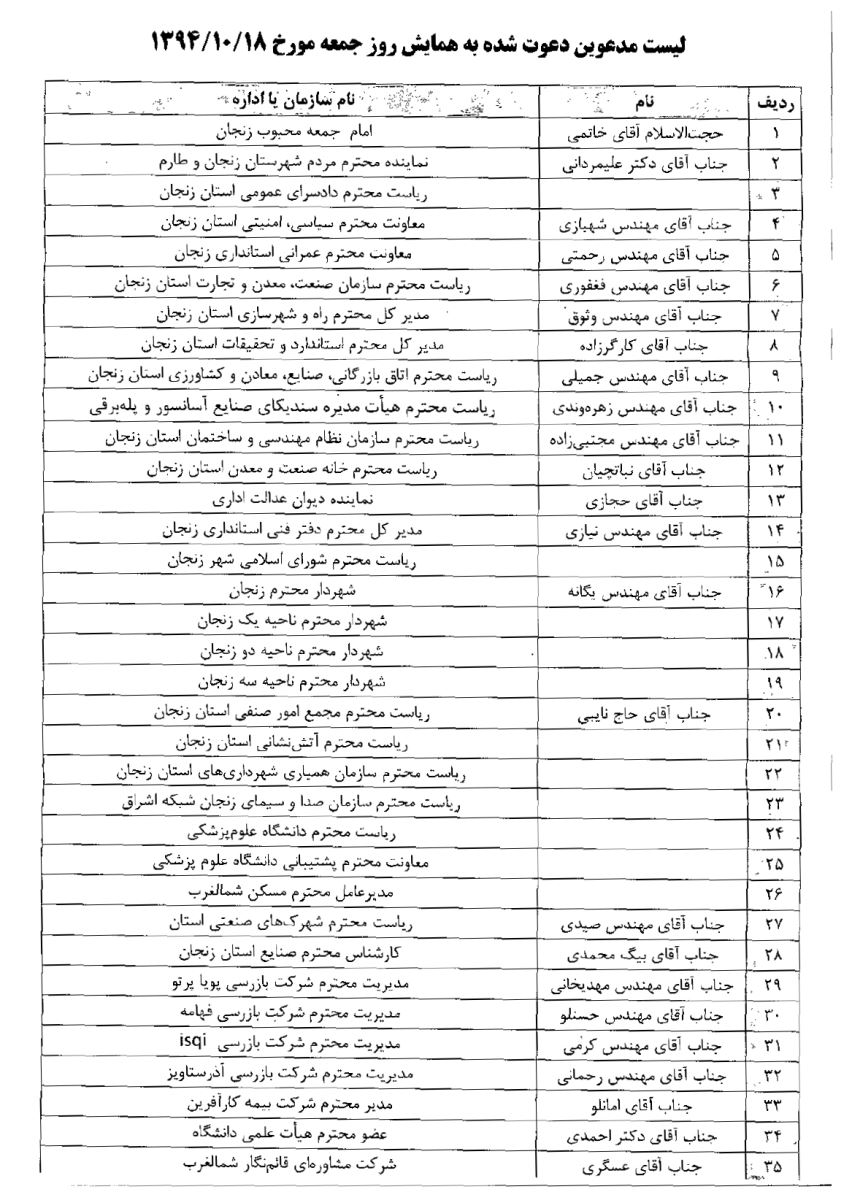 لیست مدعوین دعوت شده به همایش روز جمعه مورخ ۱۳۹۴/۱۰/۱۸
ردیف نام نام سازمان یا اداره
۱ حجت‌الاسلام آقای خاتمی امام جمعه محبوب زنجان
۲ جناب آقای دکتر علیمردانی نماینده محترم مردم شهرستان زنجان و طارم
۳ ریاست محترم دادسرای عمومی استان زنجان
۴ جناب آقای مهندس شهبازی معاونت محترم سیاسی، امنیتی استان زنجان
۵ جناب آقای مهندس رحمتی معاونت محترم عمرانی استانداری زنجان
۶ جناب آقای مهندس فغفوری ریاست محترم سازمان صنعت، معدن و تجارت استان زنجان
۷ جناب آقای مهندس وثوق مدیر کل محترم راه و شهرسازی استان زنجان
۸ جناب آقای کارگرزاده مدیر کل محترم استاندارد و تحقیقات استان زنجان
۹ جناب آقای مهندس جمیلی ریاست محترم اتاق بازرگانی، صنایع، معادن و کشاورزی استان زنجان
۱۰ جناب آقای مهندس زهره‌وندی ریاست محترم هیأت مدیره سندیکای صنایع آسانسور و پله‌برقی
۱۱ جناب آقای مهندس مجتبی‌زاده ریاست محترم سازمان نظام مهندسی و ساختمان استان زنجان
۱۲ جناب آقای نباتچیان ریاست محترم خانه صنعت و معدن استان زنجان
۱۳ جناب آقای حجازی نماینده دیوان عدالت اداری
۱۴ جناب آقای مهندس نیازی مدیر کل محترم دفتر فنی استانداری زنجان
۱۵ ریاست محترم شورای اسلامی شهر زنجان
۱۶ جناب آقای مهندس یگانه شهردار محترم زنجان
۱۷ شهردار محترم ناحیه یک زنجان
۱۸ شهردار محترم ناحیه دو زنجان
۱۹ شهردار محترم ناحیه سه زنجان
۲۰ جناب آقای حاج نایبی ریاست محترم مجمع امور صنفی استان زنجان
۲۱ ریاست محترم آتش‌نشانی استان زنجان
۲۲ ریاست محترم سازمان همیاری شهرداری‌های استان زنجان
۲۳ ریاست محترم سازمان صدا و سیمای زنجان شبکه اشراق
۲۴ ریاست محترم دانشگاه علوم‌پزشکی
۲۵ معاونت محترم پشتیبانی دانشگاه علوم پزشکی
۲۶ مدیرعامل محترم مسکن شمالغرب
۲۷ جناب آقای مهندس صیدی ریاست محترم شهرک‌های صنعتی استان
۲۸ جناب آقای بیگ محمدی کارشناس محترم صنایع استان زنجان
۲۹ جناب آقای مهندس مهدیخانی مدیریت محترم شرکت بازرسی پویا پرتو
۳۰ جناب آقای مهندس حسنلو مدیریت محترم شرکت بازرسی فهامه
۳۱ جناب آقای مهندس کرمی مدیریت محترم شرکت بازرسی isqi
۳۲ جناب آقای مهندس رحمانی مدیریت محترم شرکت بازرسی آذرستاویز
۳۳ جناب آقای امانلو مدیر محترم شرکت بیمه کارآفرین
۳۴ جناب آقای دکتر احمدی عضو محترم هیأت علمی دانشگاه
۳۵ جناب آقای عسگری شرکت مشاوره‌ای قائم‌نگار شمالغرب